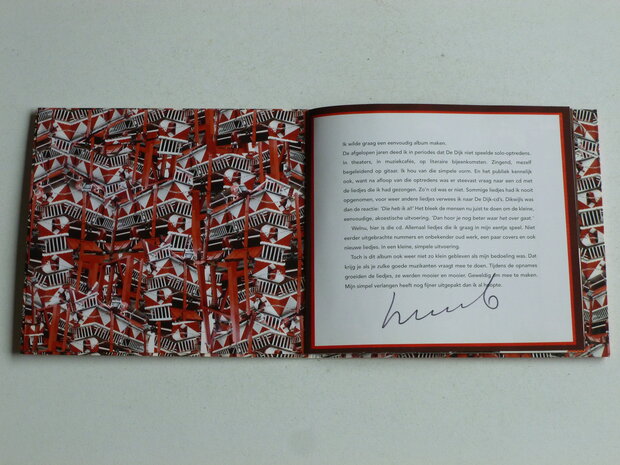 Ik wilde graag een eenvoudig album maken.
De afgelopen jaren deed ik in periodes dat De Dijk niet speelde solo-optredens.
In theaters, in muziekcafés, op literaire bijeenkomsten. Zingend, mezelf
begeleidend op gitaar. Ik hou van die simpele vorm. En het publiek kennelijk
ook, want na afloop van die optredens was er steevast vraag naar een cd met
de liedjes die ik had gezongen. Zo'n cd was er niet. Sommige liedjes had ik nooit
opgenomen, voor weer andere liedjes verwees ik naar De Dijk-cd's. Dikwijls was
dan de reactie: 'Die heb ik al!' Het bleek de mensen nu juist te doen om de kleine,
eenvoudige, akoestische uitvoering. 'Dan hoor je nog beter waar het over gaat.'
Welnu, hier is die cd. Allemaal liedjes die ik graag in mijn eentje speel. Niet
eerder uitgebrachte nummers en onbekender oud werk, een paar covers en ook
nieuwe liedjes. In een kleine, simpele uitvoering.
Toch is dit album ook weer niet zo klein gebleven als mijn bedoeling was. Dat
krijg je als je zulke goede muzikanten vraagt mee te doen. Tijdens de opnames
groeiden de liedjes, ze werden mooier en mooier. Geweldig om mee te maken.
Mijn simpel verlangen heeft nog fijner uitgepakt dan ik al hoopte.